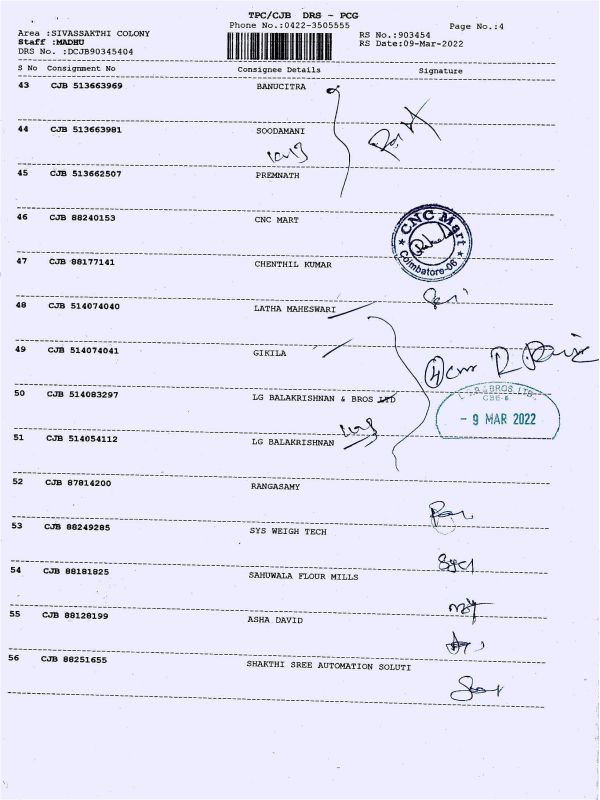 TPC/CJB DRS - PCG
Phone No.:0422-3505555
Page No.:4
Area :SIVASSAKTHI COLONY
Staff :MADHU
DRS No. :DCJB90345404
RS No.:903454
RS Date:09-Mar-2022
S No Consignment No Consignee Details Signature
43 CJB 513663969 BANUCITRA
44 CJB 513663981 SOODAMANI
45 CJB 513662507 PREMNATH
46 CJB 88240153 CNC MART
CNC Mart
Coimbatore-06
47 CJB 88177141 CHENTHIL KUMAR
48 CJB 514074040 LATHA MAHESWARI
49 CJB 514074041 GIKILA
50 CJB 514083297 LG BALAKRISHNAN & BROS LTD
- 9 MAR 2022
51 CJB 514054112 LG BALAKRISHNAN
52 CJB 87814200 RANGASAMY
53 CJB 88249285 SYS WEIGH TECH
54 CJB 88181825 SAHUWALA FLOUR MILLS
55 CJB 88128199 ASHA DAVID
56 CJB 88251655 SHAKTHI SREE AUTOMATION SOLUTI